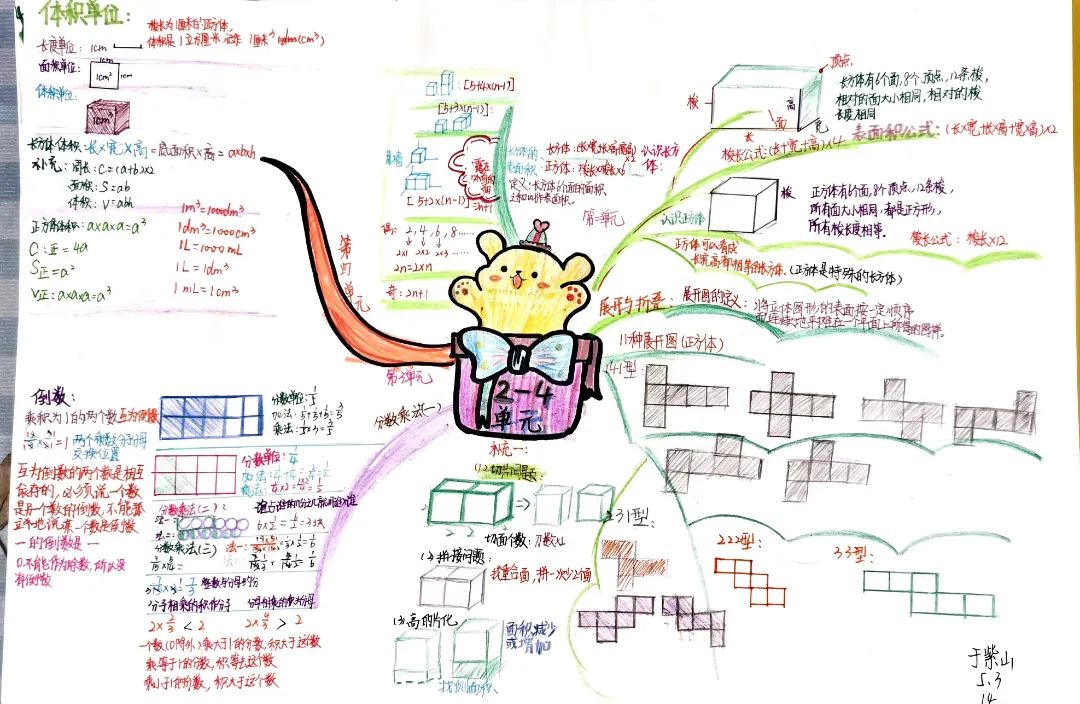 体积单位:
棱长为1厘米的正方体,
体积是1立方厘米
长度单位: 1cm
面积单位:
1cm²
1cm
体积单位:
1cm³
长方体体积: 长×宽×高=底面积×高=a×b×h
补充: 周长: C=(a+b)×2
面积: S=ab
体积: V=abh
正方体体积: a×a×a=a³
C正=4a
S正=a²
V正: a×a×a=a³
1m³=1000dm³
1dm³=1000cm³
1L=1000mL
1L=1dm³
1mL=1cm³
第四单元
[5+4×(n-1)]
[5+3×(n-1)]:
靠墙
露在外面的面
[5+2×(n-1)]
偶: 2,4,6,8……
2×1 2×2 2×3 ……
2n=2×n
奇: 2n+1
长方体的表面积:
长方体: (长×宽+长×高+宽×高)×2
正方体: 棱长×棱长×6
定义: 长方体6个面的面积之和叫作表面积。
第二单元
认识长方体:
顶点
棱
高
面
长
宽
长方体有6个面,8个顶点,12条棱,
相对的面大小相同,相对的棱
长度相同
表面积公式:(长×宽+长×高+宽×高)×2
棱长公式:(长+宽+高)×4
认识正方体
棱
正方体有6个面,8个顶点,12条棱,
所有面大小相同,都是正方形,
所有棱长度相等。
棱长公式: 棱长×12
正方体可以看成
长宽高都相等的长方体。(正方体是特殊的长方体)
展开与折叠:
展开图的定义: 将立体图形的表面按一定顺序
11种展开图(正方体)
141型:
231型:
222型:
33型:
2-4
单元
第3单元
分数乘法(一)
倒数:
乘积为1的两个数互为倒数
两个乘数分子分母
交换位置
互为倒数的两个数是相互
依存的,必须说一个数
是另一个数的倒数,不能孤
立地说某一个数是倒数
一的倒数是一
0不能作为分数,所以没
有倒数
分数单位: 1/5
加法: 1/5+1/5+1/5=3/5
乘法: 1/5×3=3/5
分数单位: 1/4
加法:
乘法:
分数乘法(二):
法一:
法二:
分数乘法(三)
法一:
整数与分母约分
分子相乘的积作分子
2×2/3 < 2
2×4/3 > 2
一个数(0除外)乘大于1的分数,积大于这个数
乘等于1的分数,积等于这个数
乘小于1的分数,积大于这个数
补充一:
(1)切片问题:
切面个数: 刀数×2
(2)拼接问题:
找重合面,拼一次少2个面
(3)高的变化
面积减少
或增加
找侧面积、
于紫山
5.3
14